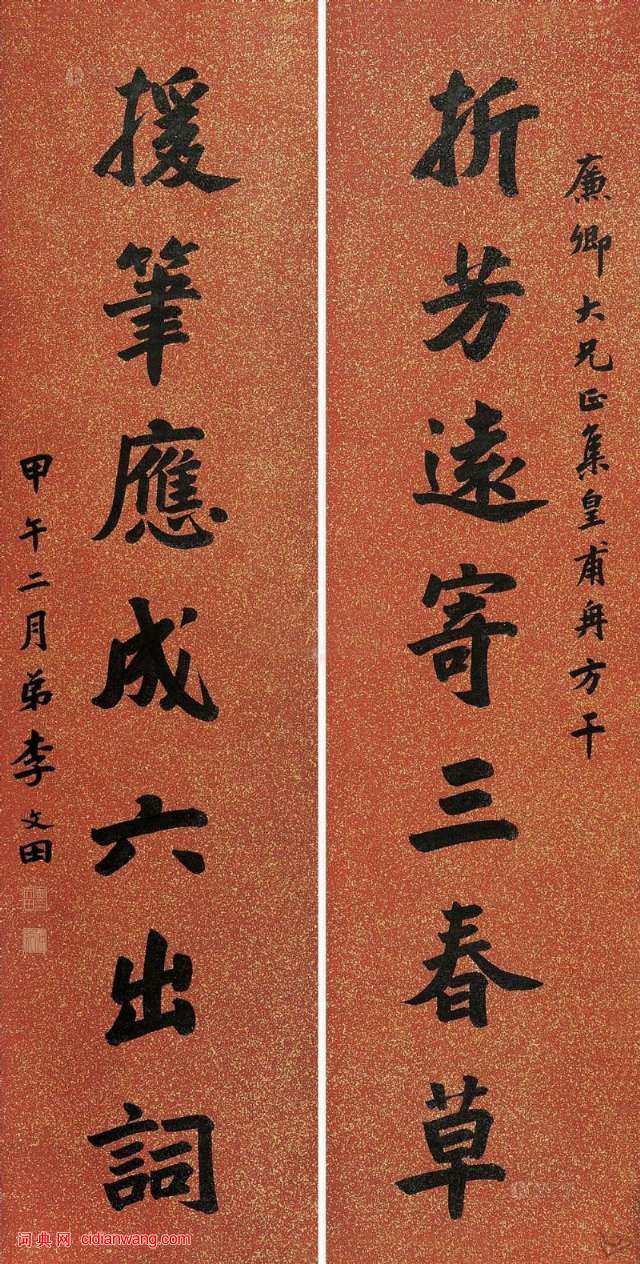 廉卿大兄正集皇甫冉方干
折芳遠寄三春草
援筆應成六出詞
甲午二月弟李文田
词典网 cidianwang.com